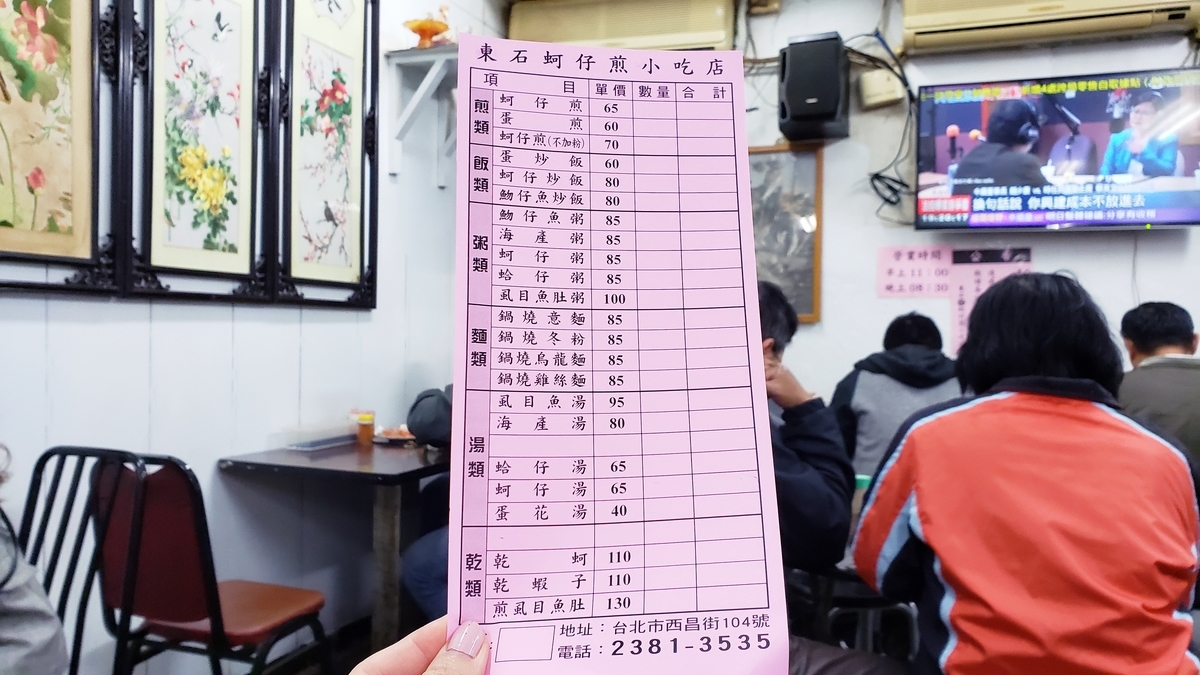 東石蚵仔煎小吃店
項目 單價 數量 合計
煎類
蚵仔煎 65
蛋煎 60
蚵仔煎(不加粉) 70
飯類
蛋炒飯 60
蚵仔炒飯 80
魩仔魚炒飯 80
粥類
魩仔魚粥 85
海產粥 85
蚵仔粥 85
蛤仔粥 85
虱目魚肚粥 100
麵類
鍋燒意麵 85
鍋燒冬粉 85
鍋燒烏龍麵 85
鍋燒雞絲麵 85
湯類
虱目魚湯 95
海產湯 80
蛤仔湯 65
蚵仔湯 65
蛋花湯 40
乾類
乾蚵 110
乾蝦子 110
煎虱目魚肚 130
地址：台北市西昌街104號
電話：2381-3535
換句話說 你興建成本不放進去
營業時間
早上11：00